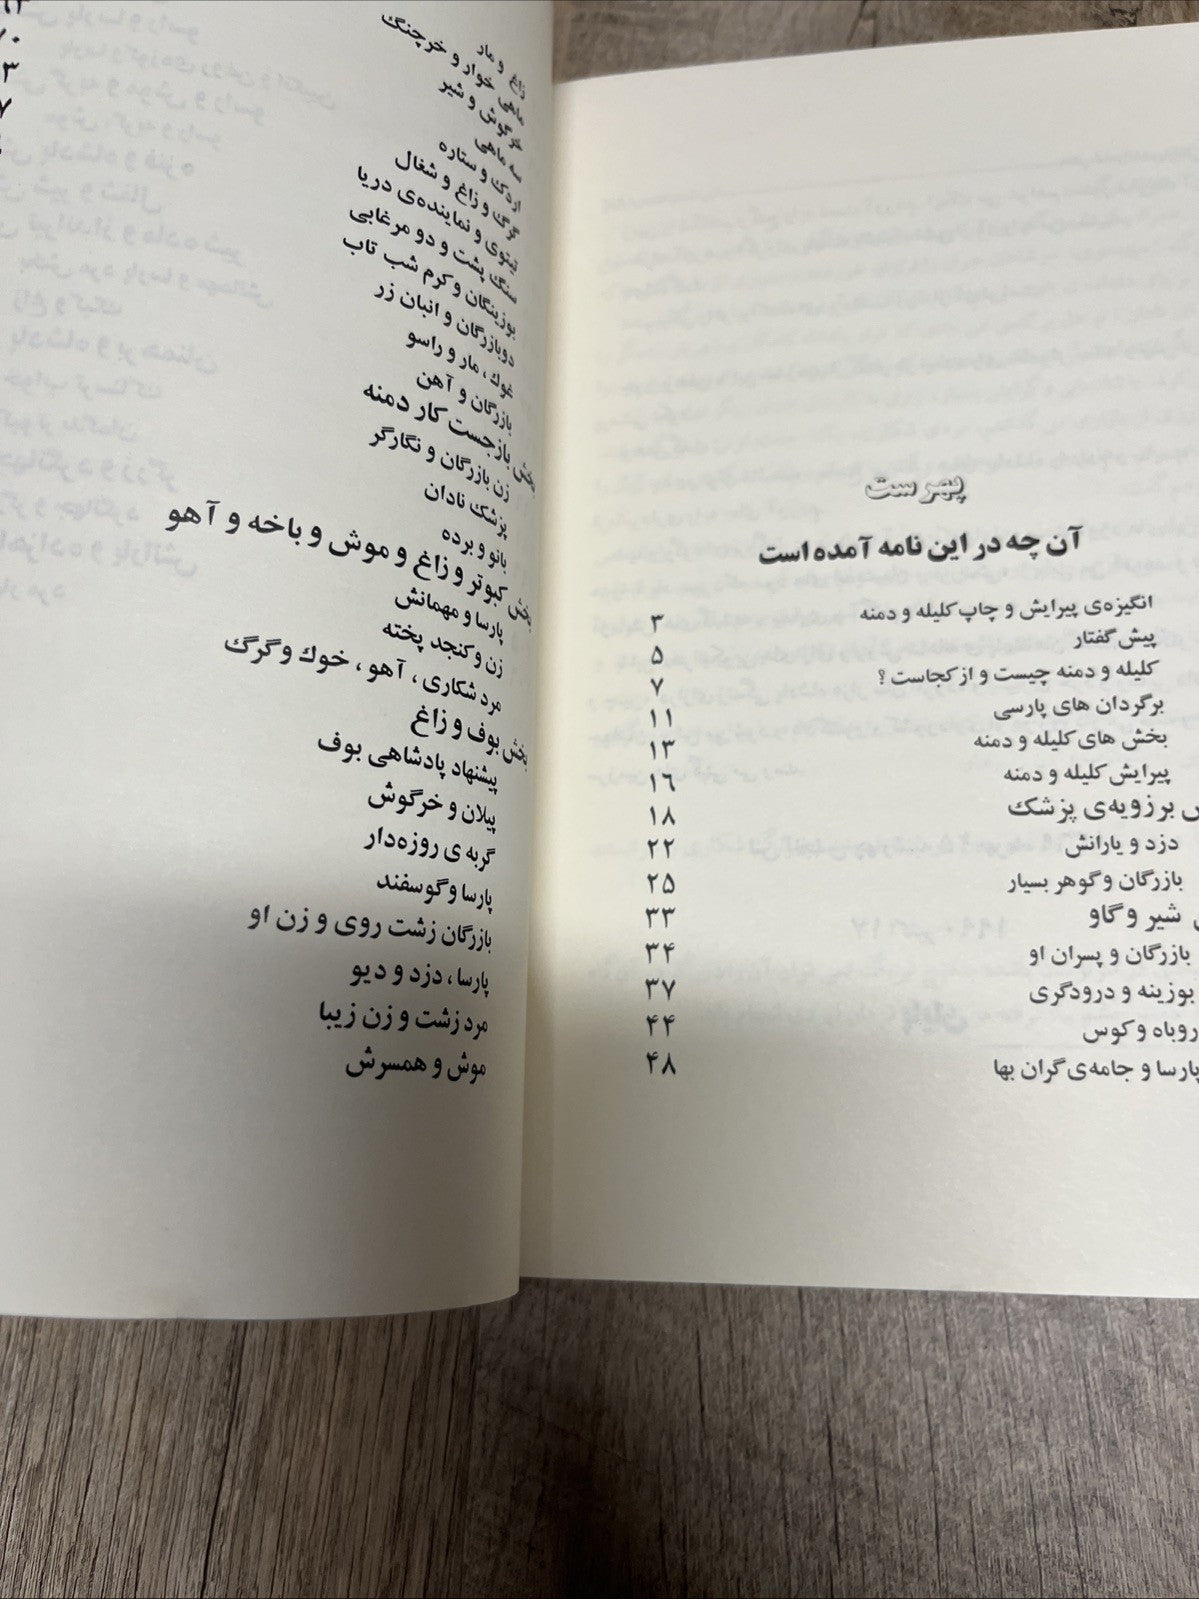 پهرست
آن چه در این نامه آمده است
انگیزه‌ی پیرایش و چاپ کلیله و دمنه ۳
پیش گفتار ۵
کلیله و دمنه چیست و از کجاست ؟ ۷
برگردان های پارسی ۱۱
بخش های کلیله و دمنه ۱۳
پیرایش کلیله و دمنه ۱۶
برزویه‌ی پزشک ۱۸
دزد و یارانش ۲۲
بازرگان و گوهر بسیار ۲۵
شیر و گاو ۳۳
بازرگان و پسران او ۳۴
بوزینه و درودگری ۳۷
روباه و کوس ۴۴
پارسا و جامه‌ی گران بها ۴۸
زاغ و مار
ماهی خوار و خرچنگ
خرگوش و شیر
سه ماهی
اردک و ستاره
گرگ و زاغ و شغال
تیتوی و نماینده‌ی دریا
سنگ پشت و دو مرغابی
بوزینگان و کرم شب تاب
دوبازرگان و انبان زر
غوک ، مار و راسو
بازرگان و آهن
بخش بازجست کار دمنه
زن بازرگان و نگارگر
پزشک نادان
بانو و برده
بخش کبوتر و زاغ و موش و باخه و آهو
پارسا و مهمانش
زن و کنجد پخته
مرد شکاری ، آهو ، خوک و گرگ
بخش بوف و زاغ
پیشنهاد پادشاهی بوف
پیلان و خرگوش
گربه ی روزه‌دار
پارسا و گوسفند
بازرگان زشت روی و زن او
پارسا ، دزد و دیو
مرد زشت و زن زیبا
موش و همسرش